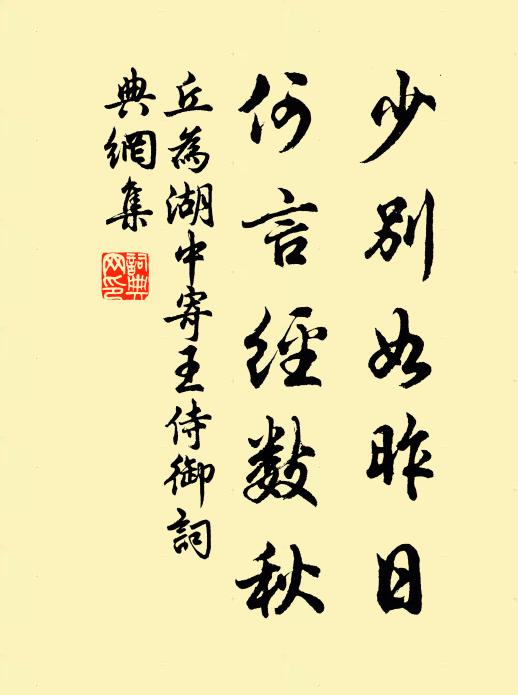 少別如昨日
何言經數秋
丘為湖中寄王侍御詞
典網集
詞典
网印